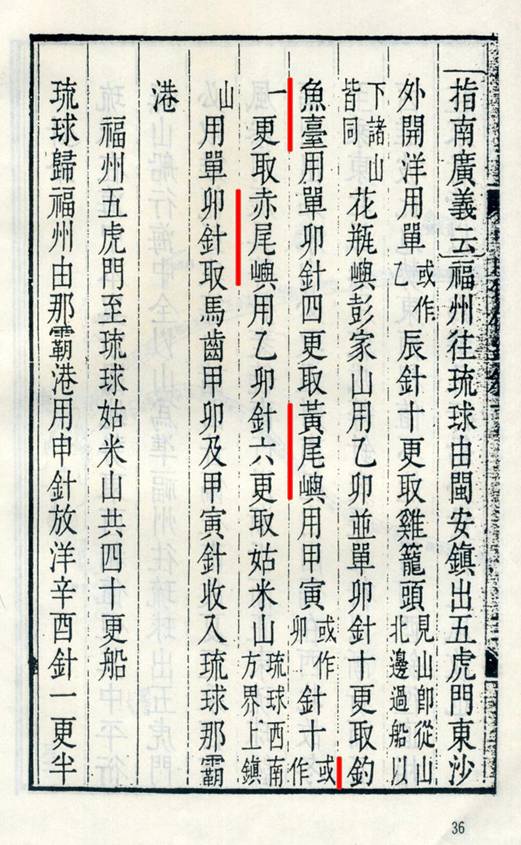 指南廣義云福州往琉球由閩安鎮出五虎門東沙
外開洋用單或作乙辰針十更取雞籠頭見山卽從山北邊過船以
下諸山皆同花瓶嶼彭家山用乙卯並單卯針十更取釣
魚臺用單卯針四更取黃尾嶼用甲寅或作卯針十或作
一更取赤尾嶼用乙卯針六更取姑米山琉球西南方界上鎮
山用單卯針取馬齒甲卯及甲寅針收入琉球那霸
港
福州五虎門至琉球姑米山共四十更船
琉球歸福州由那霸港用申針放洋辛酉針一更半
36